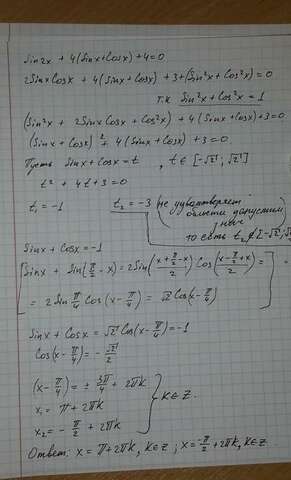 Sin2x + 4(Sinx+Cosx)+4=0
2SinxCosx + 4(Sinx+Cosx)+3+(Sin²x+Cos²x)=0
т.к Sin²x+Cos²x=1
(Sin²x + 2SinxCosx+Cos²x)+4(Sinx+Cosx)+3=0
(Sinx+Cosx)²+4(Sinx+Cosx)+3=0.
Пусть Sinx+Cosx=t, t∈[-√2; √2]
t²+4t+3=0
t₁=-1 t₂=-3 (не удовлетворяет
области допустим
знач
то есть t₂∉[-√2;√2
Sinx+Cosx=-1
[Sinx+Sin(π/2-x)=2Sin((x+π/2-x)/2)Cos((x-π/2+x)/2)=
=2Sin π/4 Cos(x-π/4)=√2Cos(x-π/4)]
Sinx+Cosx=√2Cos(x-π/4)=-1
Cos(x-π/4)=-√2/2
(x-π/4)=±3π/4+2πk
x₁=π+2πk } k∈Z.
x₂=-π/2+2πk
Ответ: x=π+2πk, k∈Z; x=-π/2+2πk, k∈Z.